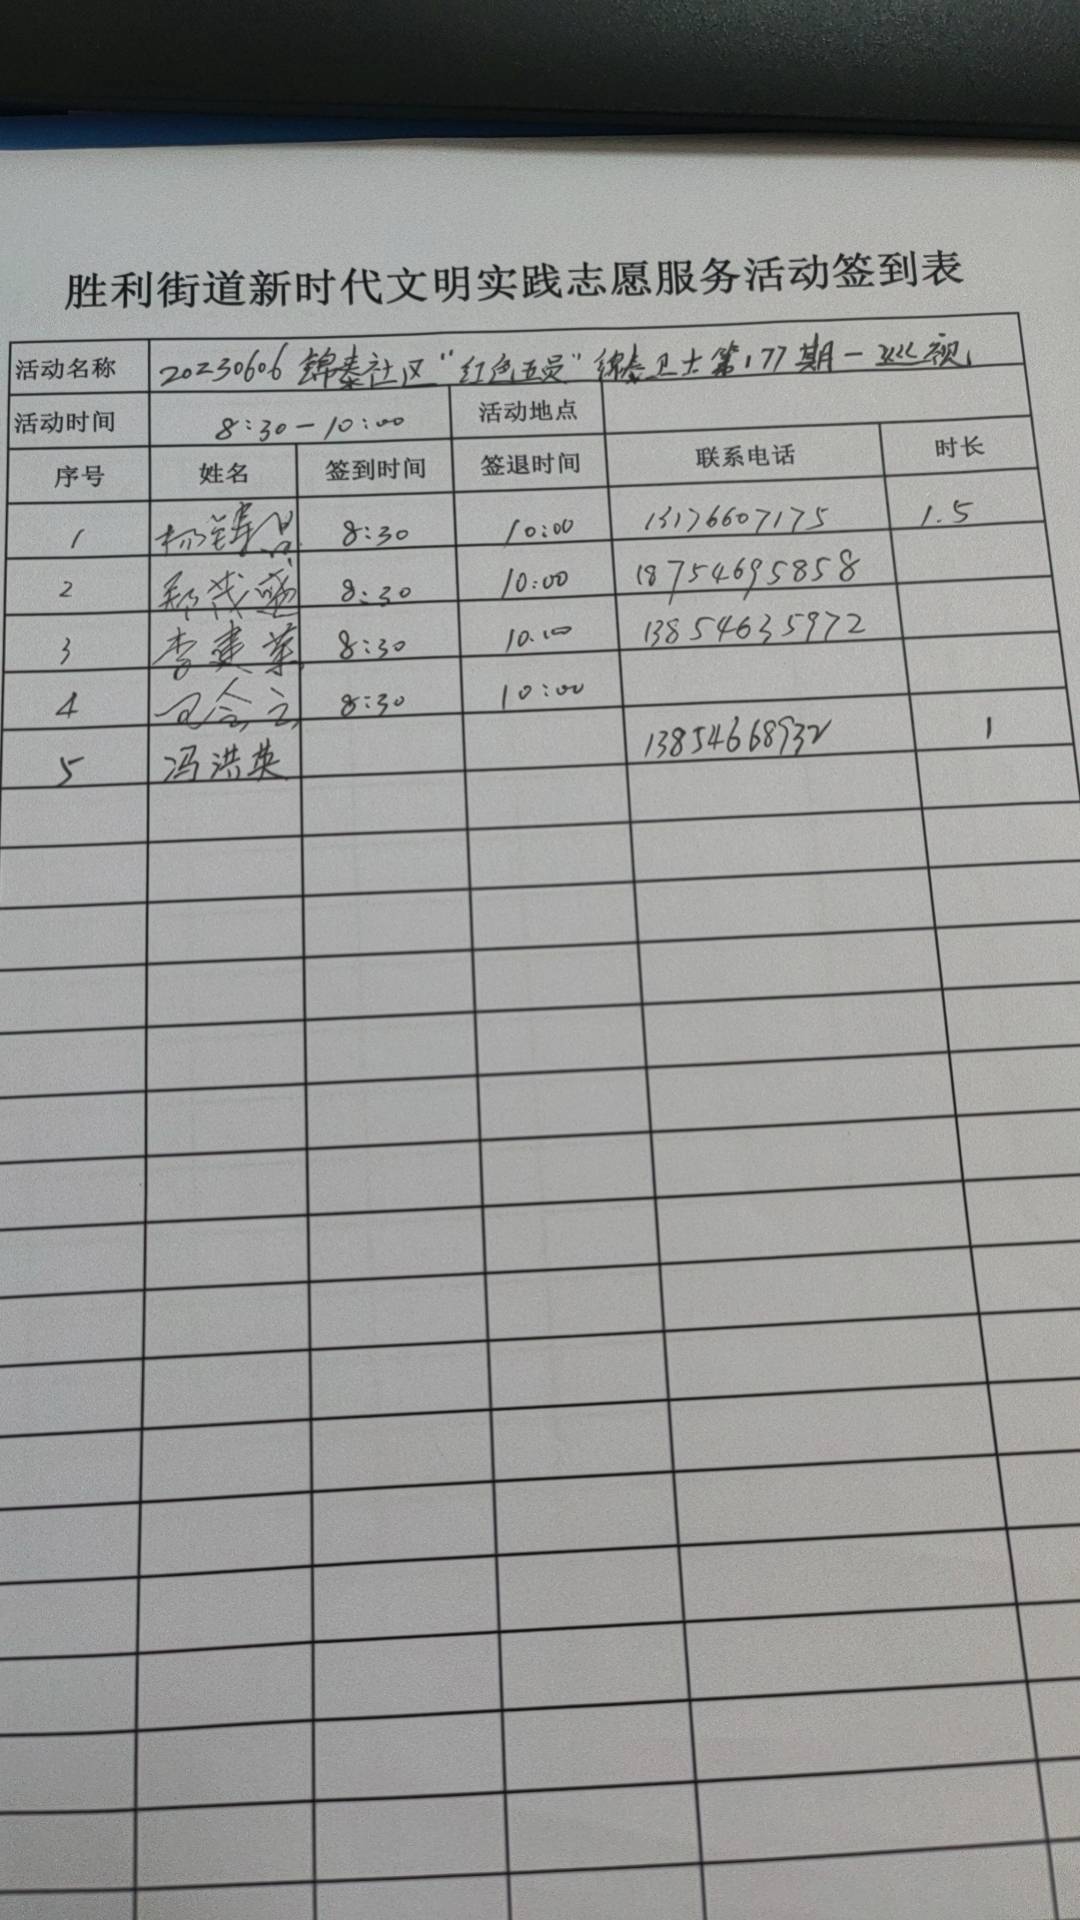 胜利街道新时代文明实践志愿服务活动签到表
活动名称 20230606 锦泰社区“红色五员”锦泰卫士第177期一巡视
活动时间 8:30-10:00 活动地点
序号 姓名 签到时间 签退时间 联系电话 时长
1 8:30 10:00 13176607175 1.5
2 郑茂盛 8:30 10:00 18754695858
3 李建业 8:30 10:00 13854635972
4 8:30 10:00
5 冯洪英 13854668932 1